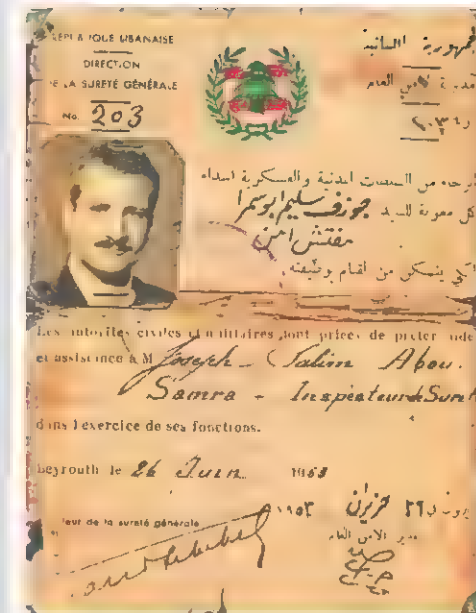 REPUBLIQUE LIBANAISE
DIRECTION
DE LA SURETÉ GÉNÉRALE
No. 203
جمهورية اللبنانية
مديرية الأمن العام
رقم ٢٠٣
كل معونة للسيد جوزف سليم ابو سمرا
مفتش امن
لكي يتمكن من القيام بوظيفته
Les autorités civiles et militaires sont priées de prêter aide
et assistance à M Joseph - Salim Abou.
Samra - Inspecteur de Sureté
dans l'exercice de ses fonctions.
Beyrouth le 26 Juin 1953
بيروت في ٢٦ حزيران ١٩٥٣
teur de la sureté générale
مدير الامن العام